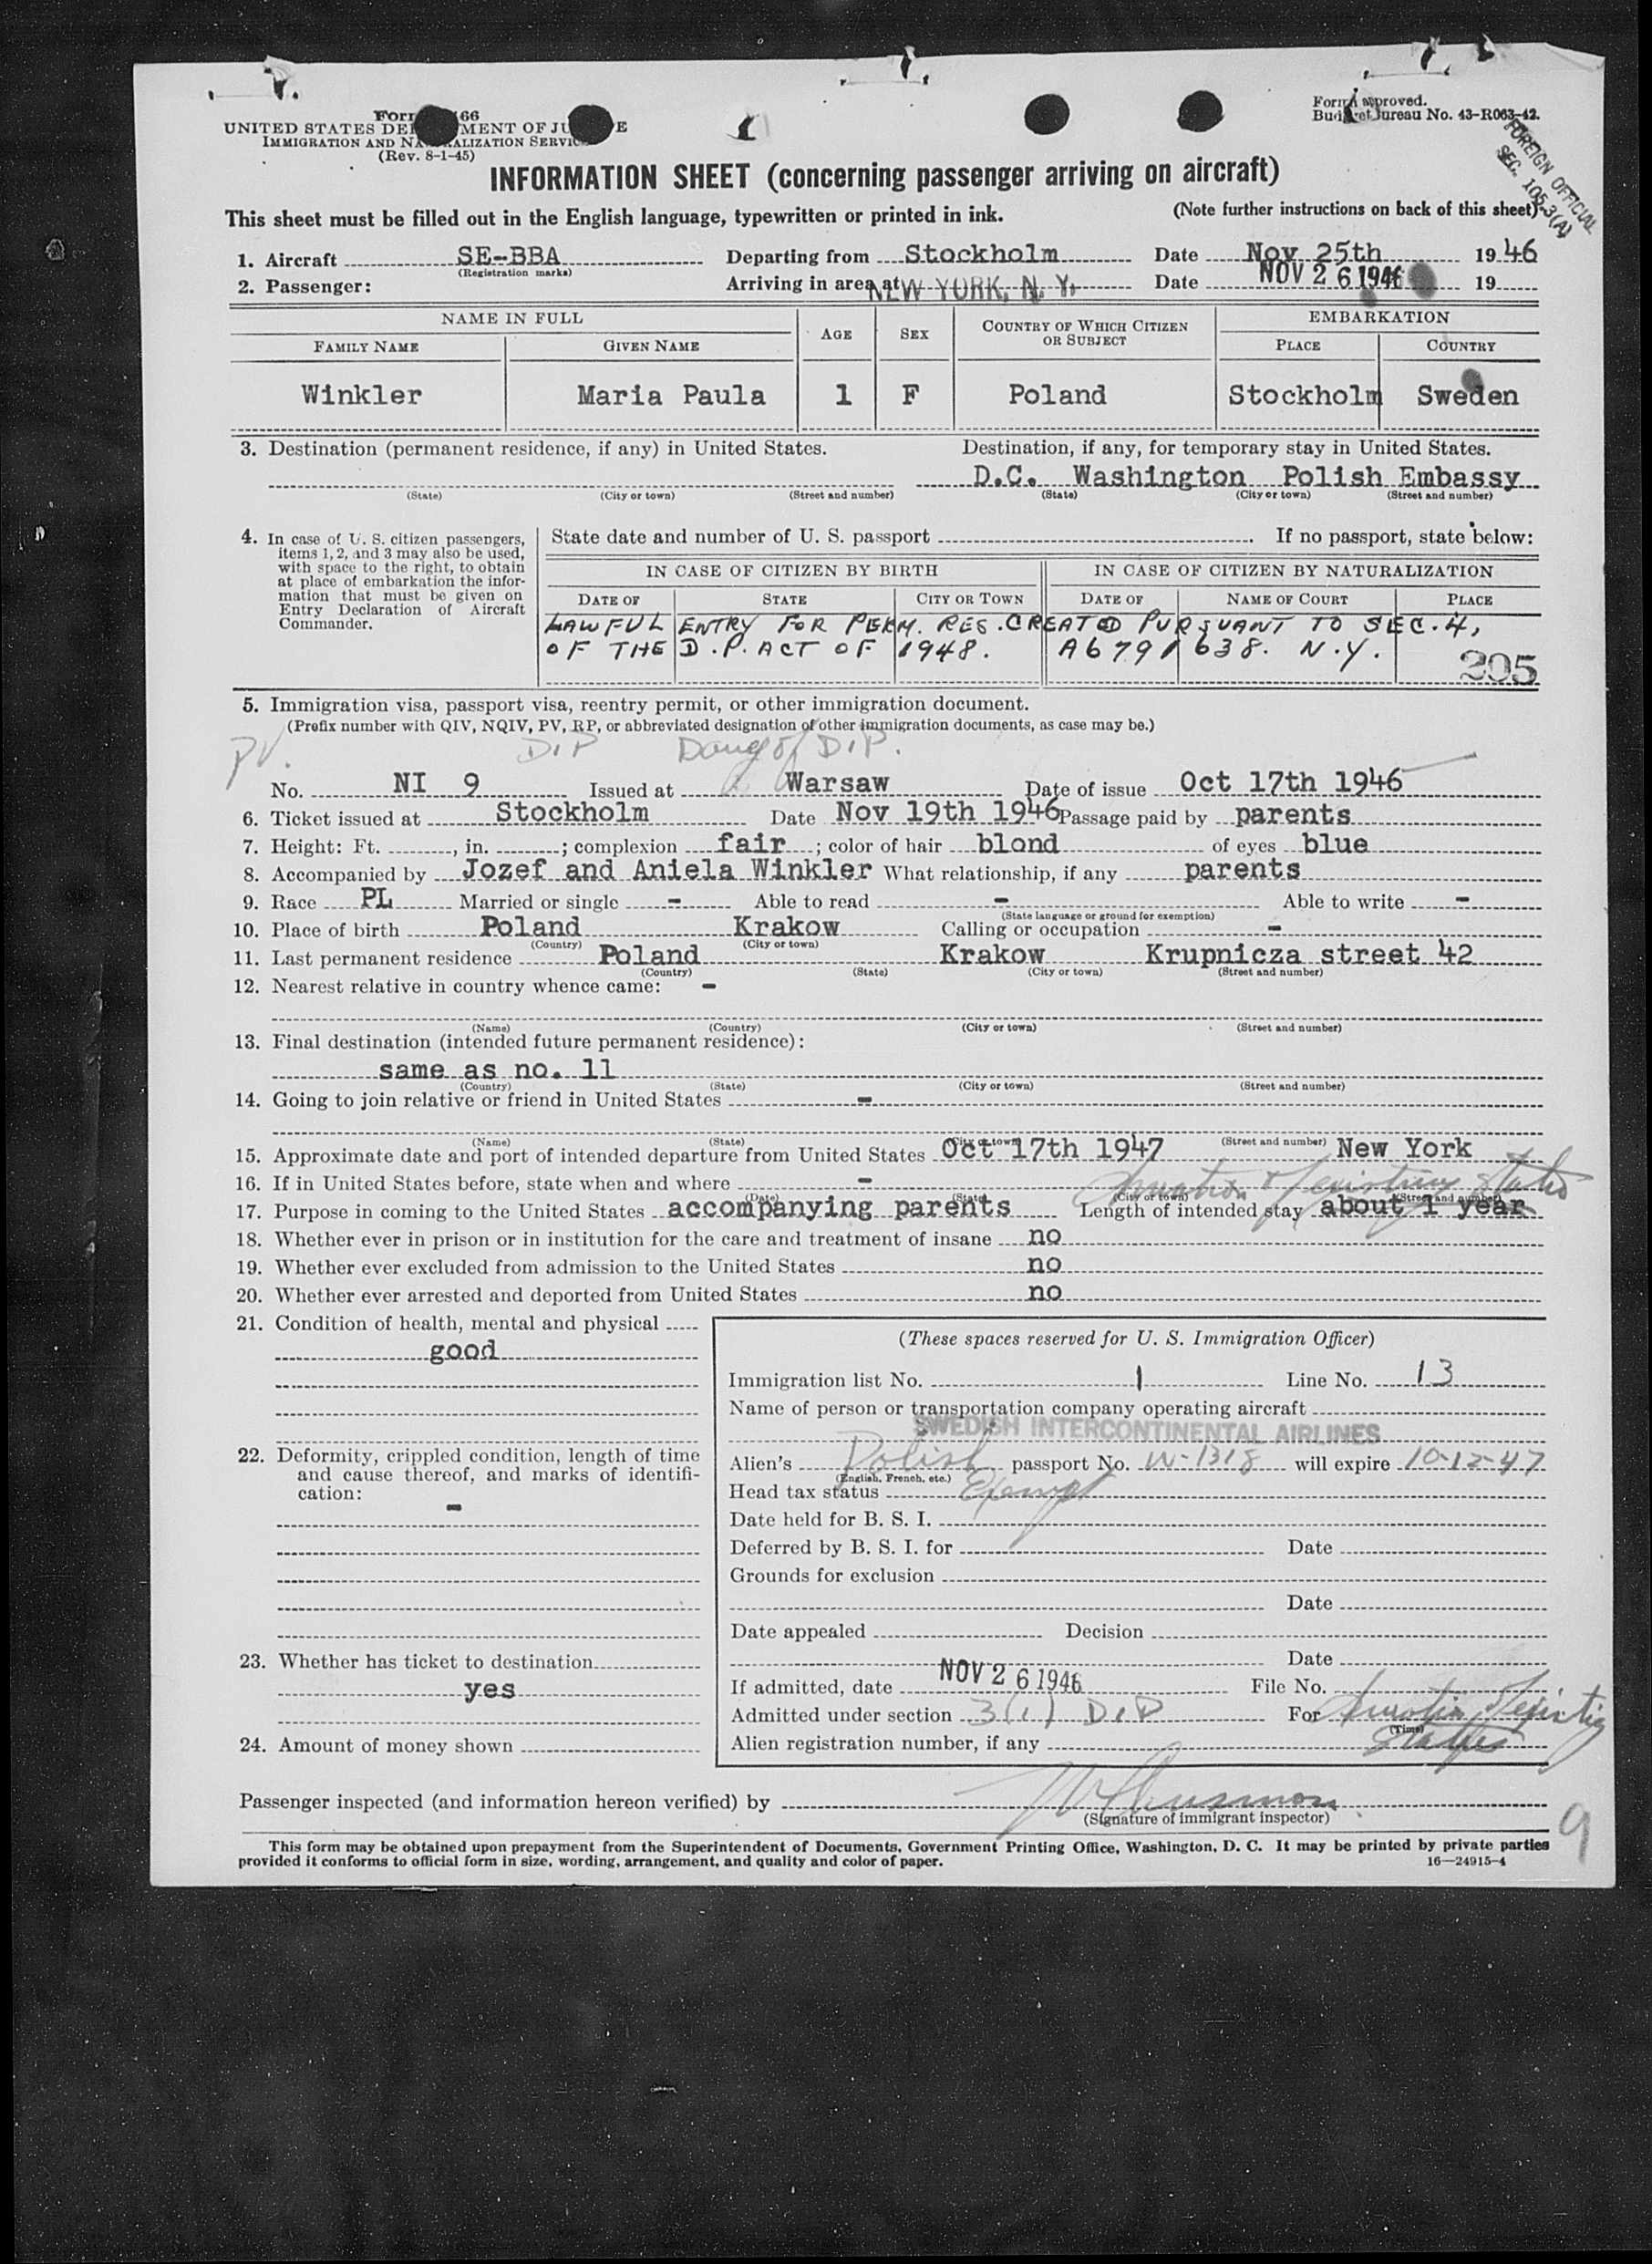 Form approved.
Budget Bureau No. 43-R063-42.
UNITED STATES DEPARTMENT OF JUSTICE
IMMIGRATION AND NATURALIZATION SERVICE
(Rev. 8-1-45)
FOREIGN OFFICIAL
SEC. 105.3(A)
INFORMATION SHEET (concerning passenger arriving on aircraft)
This sheet must be filled out in the English language, typewritten or printed in ink. (Note further instructions on back of this sheet)
1. Aircraft SE-BBA Departing from Stockholm Date Nov 25th 1946
(Registration marks)
2. Passenger: Arriving in area at NEW YORK, N. Y. Date NOV 26 1946 19
NAME IN FULL AGE SEX COUNTRY OF WHICH CITIZEN OR SUBJECT EMBARKATION
FAMILY NAME GIVEN NAME PLACE COUNTRY
Winkler Maria Paula 1 F Poland Stockholm Sweden
3. Destination (permanent residence, if any) in United States. Destination, if any, for temporary stay in United States.
D.C. Washington Polish Embassy
(State) (City or town) (Street and number) (State) (City or town) (Street and number)
4. In case of U. S. citizen passengers, items 1, 2, and 3 may also be used, with space to the right, to obtain at place of embarkation the information that must be given on Entry Declaration of Aircraft Commander.
State date and number of U. S. passport If no passport, state below:
IN CASE OF CITIZEN BY BIRTH IN CASE OF CITIZEN BY NATURALIZATION
DATE OF STATE CITY OR TOWN DATE OF NAME OF COURT PLACE
LAWFUL ENTRY FOR PERM. RES. CREATED PURSUANT TO SEC. 4,
OF THE D.P. ACT OF 1948. A6791638. N.Y.
205
5. Immigration visa, passport visa, reentry permit, or other immigration document.
(Prefix number with QIV, NQIV, PV, RP, or abbreviated designation of other immigration documents, as case may be.)
PV. DIP Daug of DIP.
No. NI 9 Issued at Warsaw Date of issue Oct 17th 1946
6. Ticket issued at Stockholm Date Nov 19th 1946 Passage paid by parents
7. Height: Ft. , in. ; complexion fair ; color of hair blond of eyes blue
8. Accompanied by Jozef and Aniela Winkler What relationship, if any parents
9. Race PL Married or single - Able to read - Able to write -
(State language or ground for exemption)
10. Place of birth Poland Krakow Calling or occupation -
(Country) (City or town)
11. Last permanent residence Poland Krakow Krupnicza street 42
(Country) (State) (City or town) (Street and number)
12. Nearest relative in country whence came: -
(Name) (Country) (City or town) (Street and number)
13. Final destination (intended future permanent residence):
same as no. 11
(Country) (State) (City or town) (Street and number)
14. Going to join relative or friend in United States -
(Name) (State) (City or town) (Street and number)
15. Approximate date and port of intended departure from United States Oct 17th 1947 New York
16. If in United States before, state when and where -
(Date) (State) (City or town) (Street and number)
Duration of existing status
17. Purpose in coming to the United States accompanying parents Length of intended stay about 1 year
18. Whether ever in prison or in institution for the care and treatment of insane no
19. Whether ever excluded from admission to the United States no
20. Whether ever arrested and deported from United States no
21. Condition of health, mental and physical
good
22. Deformity, crippled condition, length of time and cause thereof, and marks of identification:
-
23. Whether has ticket to destination
yes
24. Amount of money shown
(These spaces reserved for U. S. Immigration Officer)
Immigration list No. 1 Line No. 13
Name of person or transportation company operating aircraft
SWEDISH INTERCONTINENTAL AIRLINES
Alien's Polish passport No. W-1318 will expire 10-12-47
(English, French, etc.)
Head tax status Exempt
Date held for B. S. I.
Deferred by B. S. I. for Date
Grounds for exclusion
Date
Date appealed Decision
Date
If admitted, date NOV 26 1946 File No.
Admitted under section 3(1) DIP For Duration of existing status
(Time)
Alien registration number, if any
Passenger inspected (and information hereon verified) by
(Signature of immigrant inspector)
9
This form may be obtained upon prepayment from the Superintendent of Documents, Government Printing Office, Washington, D. C. It may be printed by private parties
provided it conforms to official form in size, wording, arrangement, and quality and color of paper. 16—24915-4